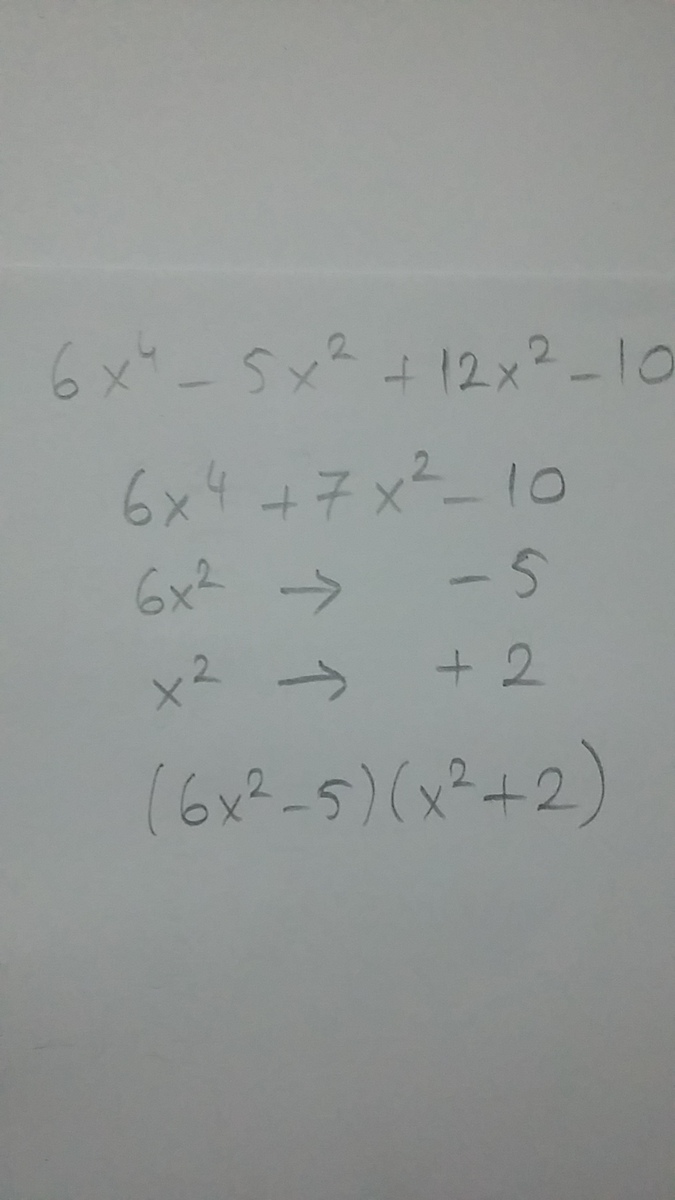 6x⁴ - 5x² + 12x² - 10
6x⁴ + 7x² - 10
6x² → - 5
x² → + 2
(6x² - 5)(x² + 2)